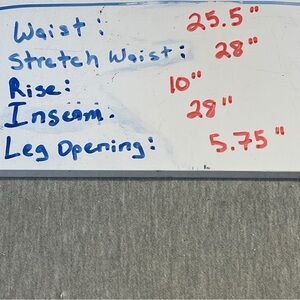 Waist: 25.5"
Stretch Waist: 28"
Rise: 10"
Inseam. 28"
Leg Opening: 5.75"